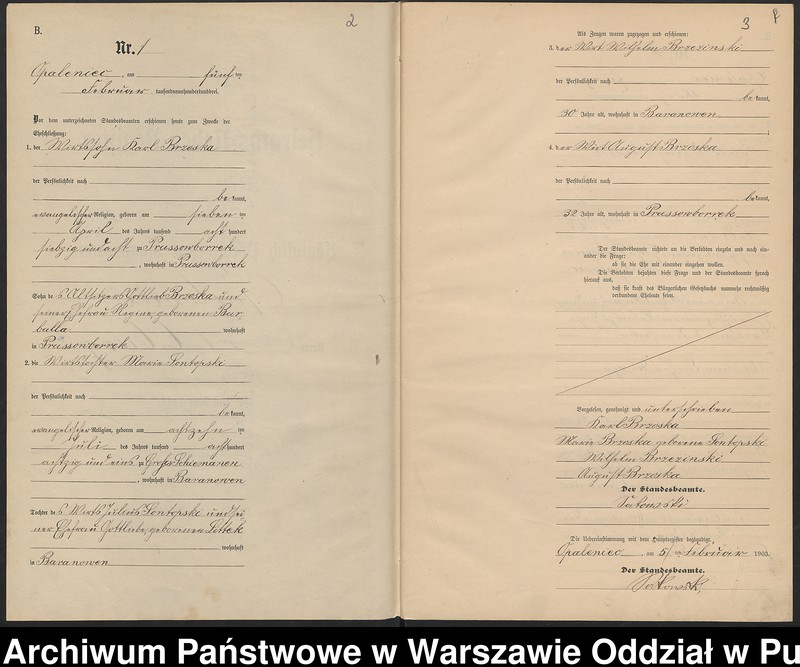 2
B.
Nr. 1
Opaleniec, am fünften
Februar tausendneunhundertunddrei.
Vor dem unterzeichneten Standesbeamten erschienen heute zum Zwecke der
Eheschließung:
1. der Wirtssohn Karl Brzoska
der Persönlichkeit nach
bekannt,
evangelischer Religion, geboren am sieben ten
April des Jahres tausend acht hundert
siebzig und acht zu Prussowborrek
, wohnhaft in Prussowborrek
Sohn des Altsitzers Gottlieb Brzoska und
seiner Ehefrau Regine geborenen Bur-
balla wohnhaft
in Prussowborrek
2. die Wirtstochter Marie Sontopski
der Persönlichkeit nach
bekannt,
evangelischer Religion, geboren am achtzehn ten
Juli des Jahres tausend acht hundert
achtzig und eins zu Groß Schiemanen
, wohnhaft in Baranowen
Tochter des Wirts Julius Sontopski und sei-
ner Ehefrau Gottliebe, geborenen Lottek
wohnhaft
in Baranowen
3
Als Zeugen waren zugezogen und erschienen:
3. der Wirt Wilhelm Brzezinski
der Persönlichkeit nach
bekannt,
30 Jahre alt, wohnhaft in Baranowen
;
4. der Wirt August Brzoska
der Persönlichkeit nach
bekannt,
32 Jahre alt, wohnhaft in Prussowborrek
Der Standesbeamte richtete an die Verlobten einzeln und nach ein-
ander die Frage:
ob sie die Ehe mit einander eingehen wollen.
Die Verlobten bejahten diese Frage und der Standesbeamte sprach
hierauf aus,
daß sie kraft des Bürgerlichen Gesetzbuchs nunmehr rechtmäßig
verbundene Eheleute seien.
Vorgelesen, genehmigt und unterschrieben
Karl Brzoska
Marie Brzoska geborene Sontopski
Wilhelm Brzezinski
August Brzoska
Der Standesbeamte.
Die Uebereinstimmung mit dem Hauptregister beglaubigt.
Opaleniec, am 5ten Februar 1903.
Der Standesbeamte.
Archiwum Państwowe w Warszawie Oddział w Pu